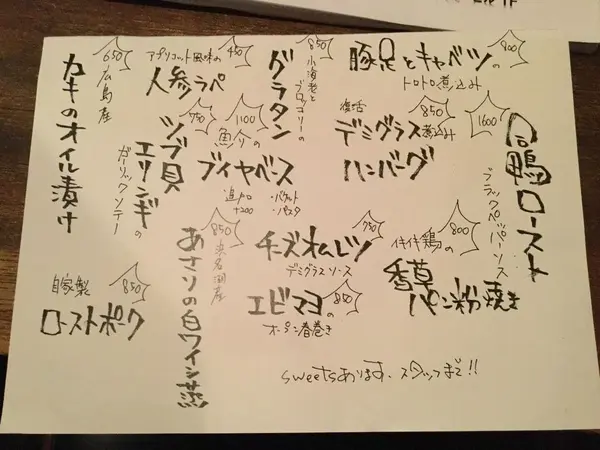 650
広島産
カキのオイル漬け
アプリコット風味の
450
人参ラペ
850
小海老と
ブロッコリーの
グラタン
900
豚足とキャベツの
トロトロ煮込み
750
ツブ貝
エリンギの
ガーリックソテー
1100
魚介の
ブイヤベース
追加
+200
・バケット
・パスタ
復活
850
デミグラス煮込み
ハンバーグ
1600
合鴨ロースト
ブラックペッパーソース
自家製
850
ローストポーク
850
浜名湖産
あさりの白ワイン蒸
750
チーズオムレツ
デミグラスソース
エビマヨの
オープン春巻き
イキイキ鶏の
800
香草
パン粉焼き
sweetsあります。スタッフまで!!